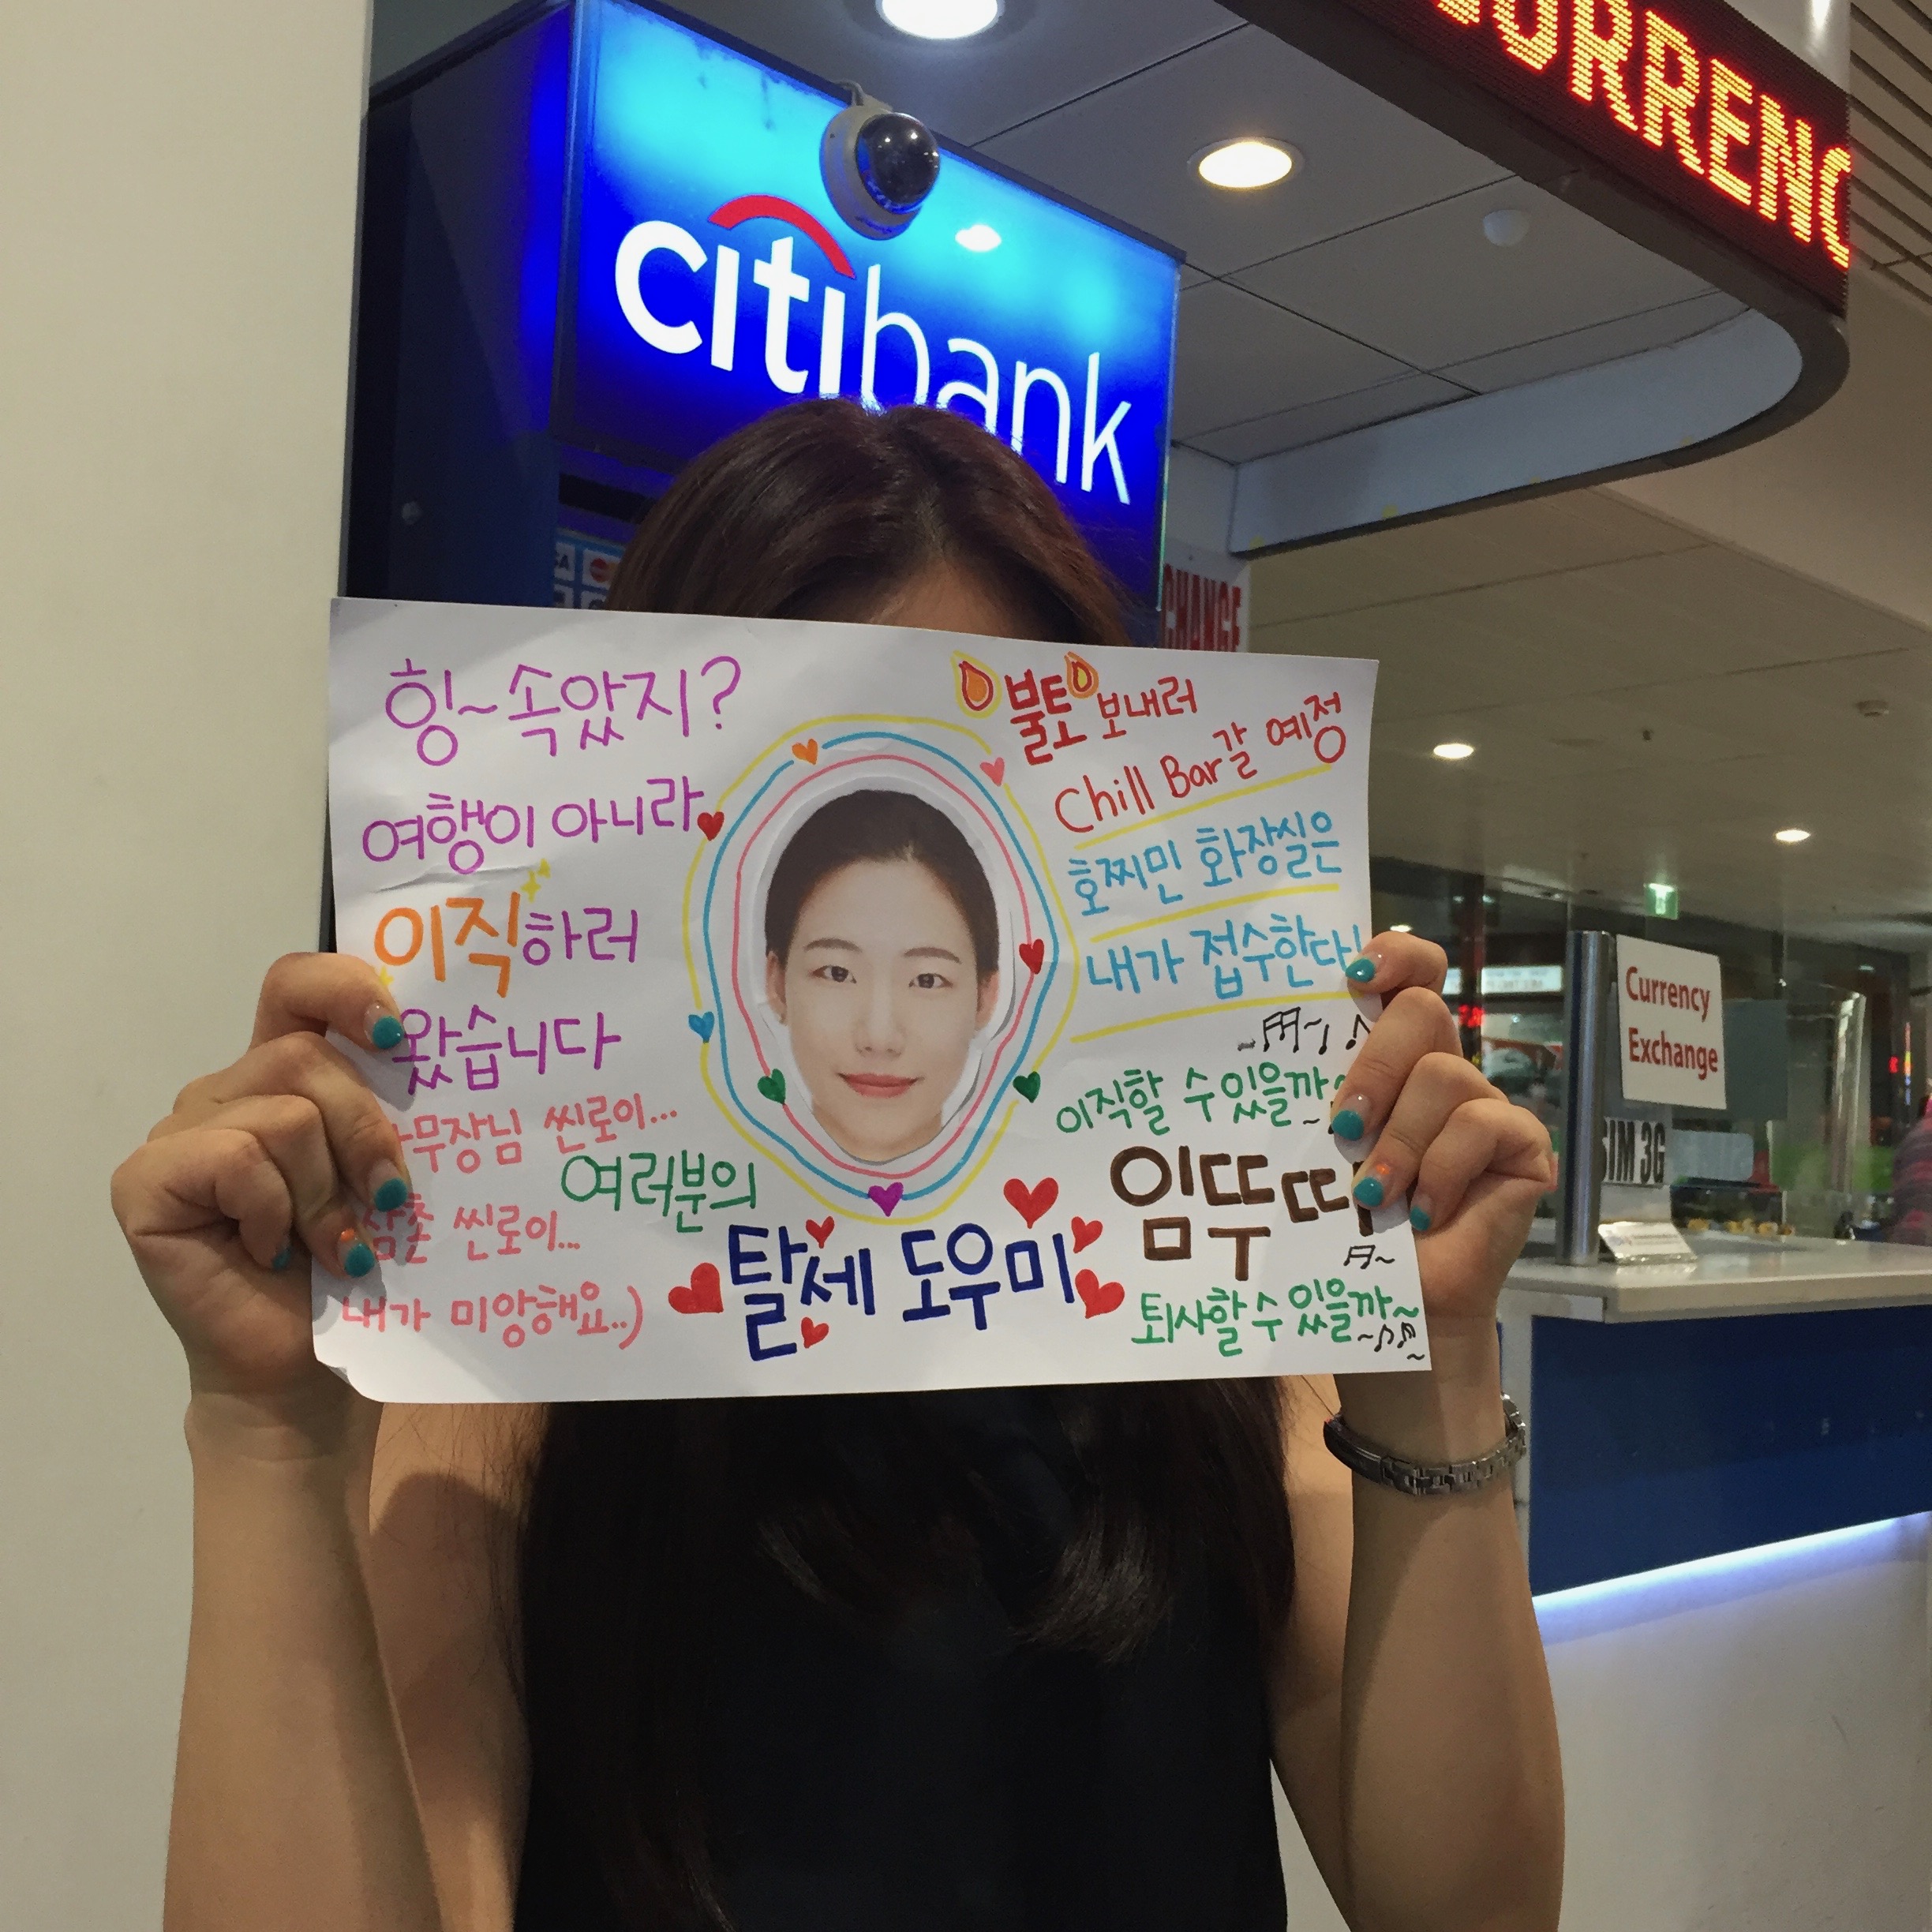 CURRENC
citibank
CHANGE
힝~속았지?
여행이 아니라
이직하러
왔습니다
무장님 씬로이...
삼촌 씬로이...
내가 미앙해요..)
여러분의
탈세 도우미
불토 보내러
Chill Bar갈 예정
호찌민 화장실은
내가 접수한다!
이직할 수 있을까~
임뚜띠
퇴사할 수 있을까~
Currency
Exchange
SIM 3G